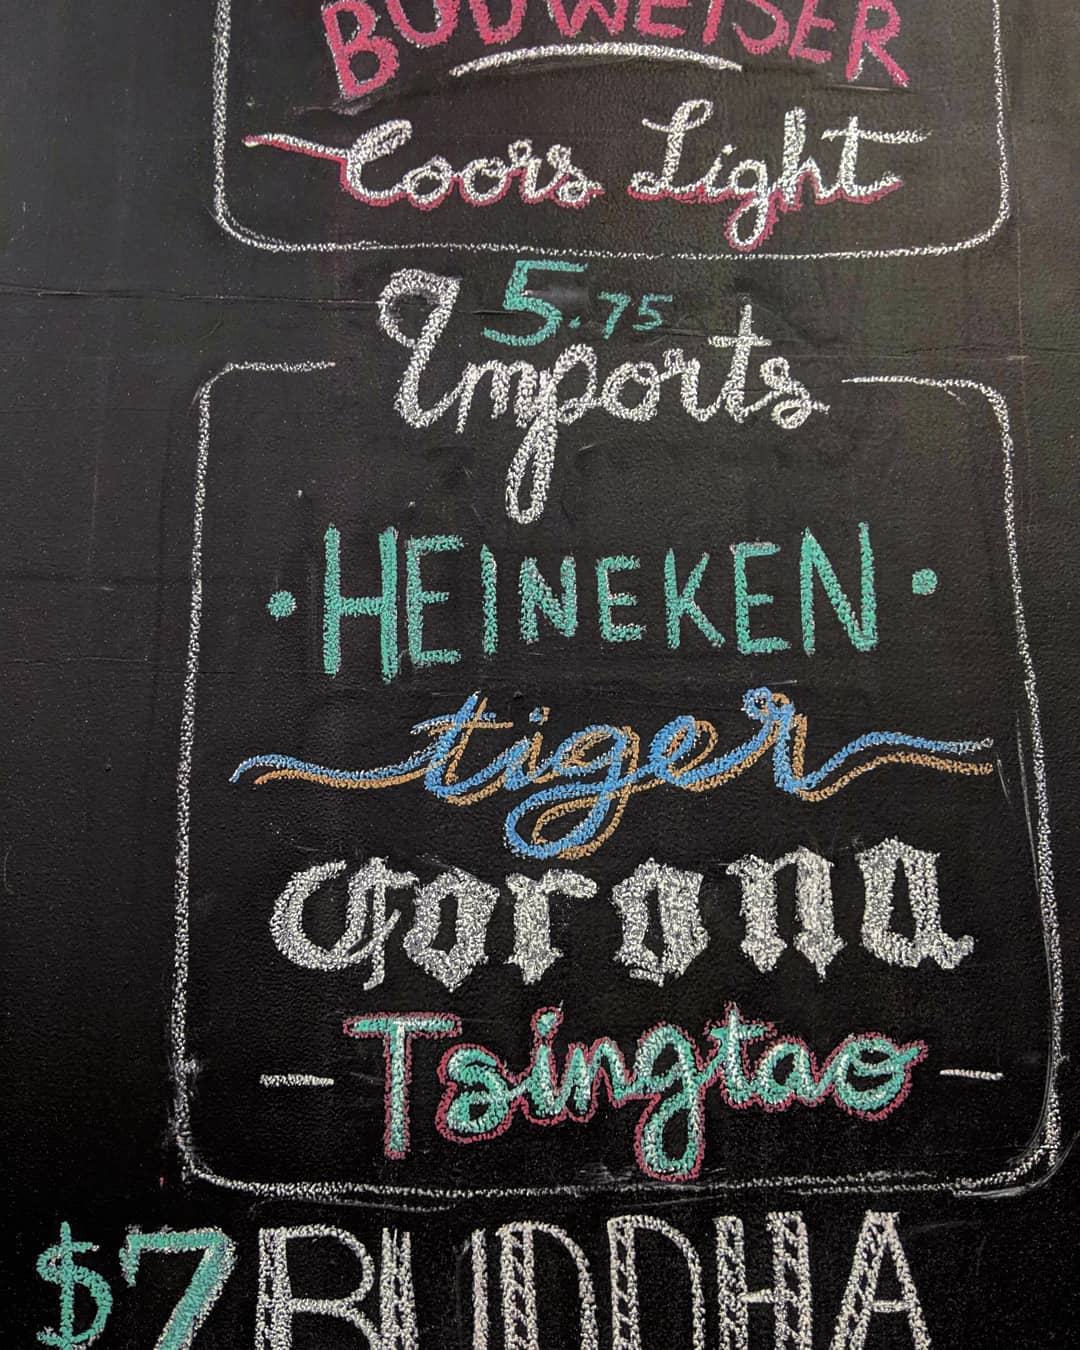 BUDWEISER
Coors Light
5.75
Imports
• HEINEKEN •
tiger
Corona
– Tsingtao –
$7 BUDDHA